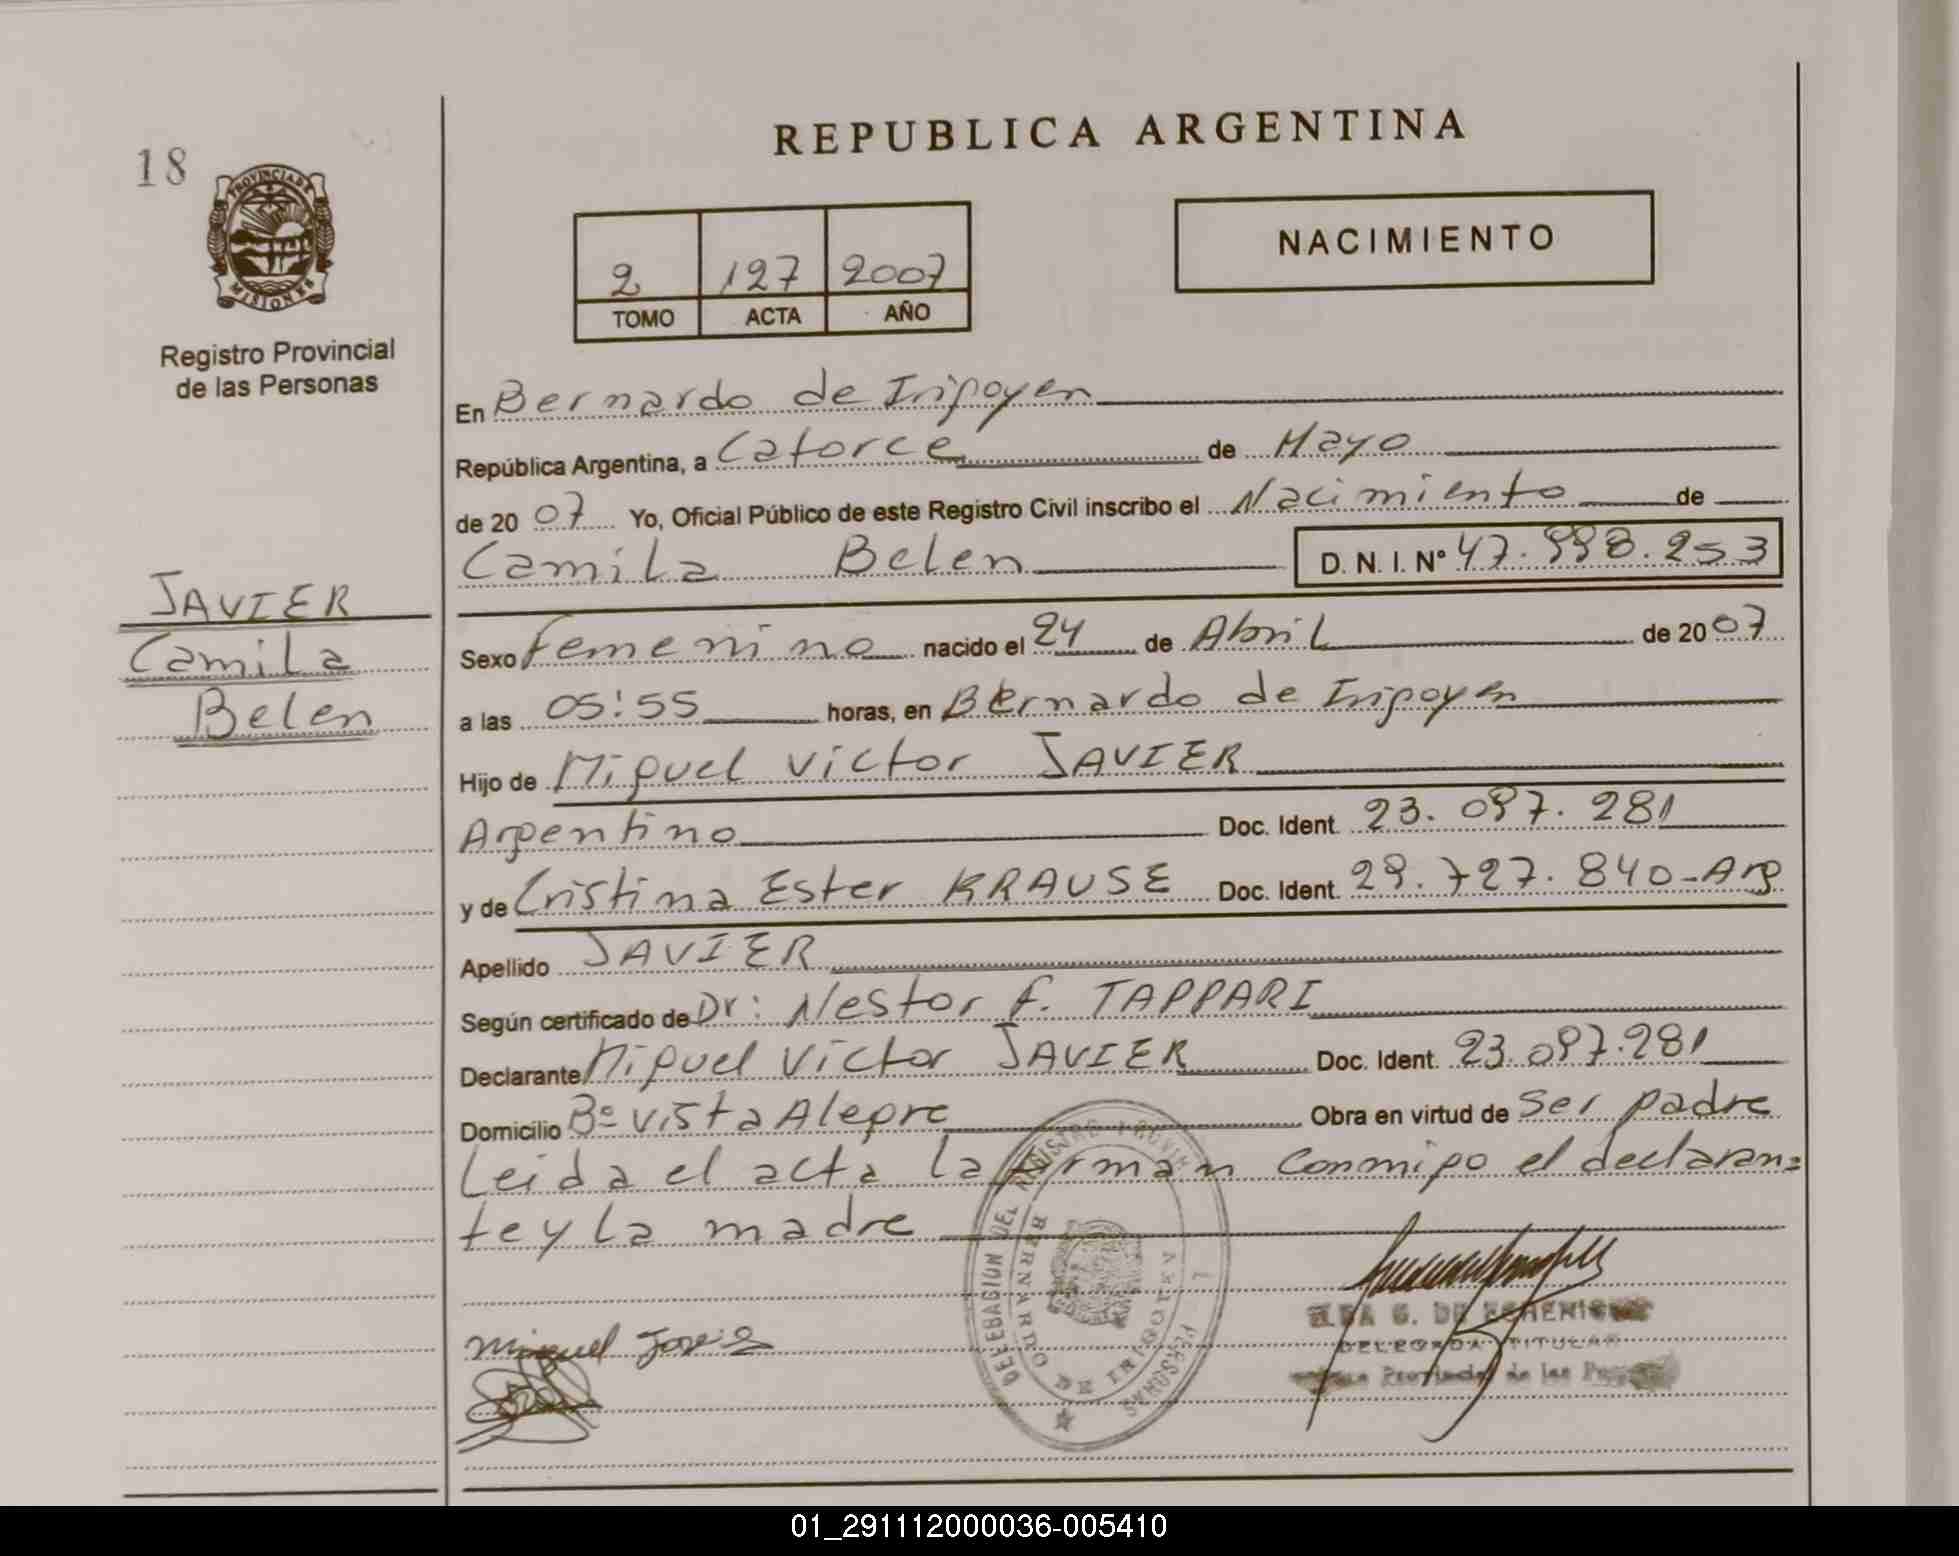 REPUBLICA ARGENTINA
18
PROVINCIA DE
MISIONES
Registro Provincial
de las Personas
2 127 2007
TOMO ACTA AÑO
NACIMIENTO
En Bernardo de Irigoyen
República Argentina, a Catorce de Mayo
de 20 07 Yo, Oficial Público de este Registro Civil inscribo el Nacimiento de
Camila Belen D. N. I. Nº 47.998.253
JAVIER
Camila
Belen
Sexo Femenino nacido el 24 de Abril de 20 07
a las 05:55 horas, en Bernardo de Irigoyen
Hijo de Miguel Victor JAVIER
Argentino Doc. Ident. 23.097.281
y de Cristina Ester KRAUSE Doc. Ident. 29.727.840-Arg
Apellido JAVIER
Según certificado de Dr: Nestor F. TAPPARI
Declarante Miguel Victor JAVIER Doc. Ident. 23.097.281
Domicilio Bº Vista Alegre Obra en virtud de Ser padre
Leida el acta la firman conmigo el declaran=
te y la madre
DELEGACION DEL REGISTRO PROVIN
PERSONAS
BERNARDO DE IRIGOYEN
Miguel Javier
G. DE ECHENIQUE
DELEGADA TITULAR
Provincial de las
01_291112000036-005410